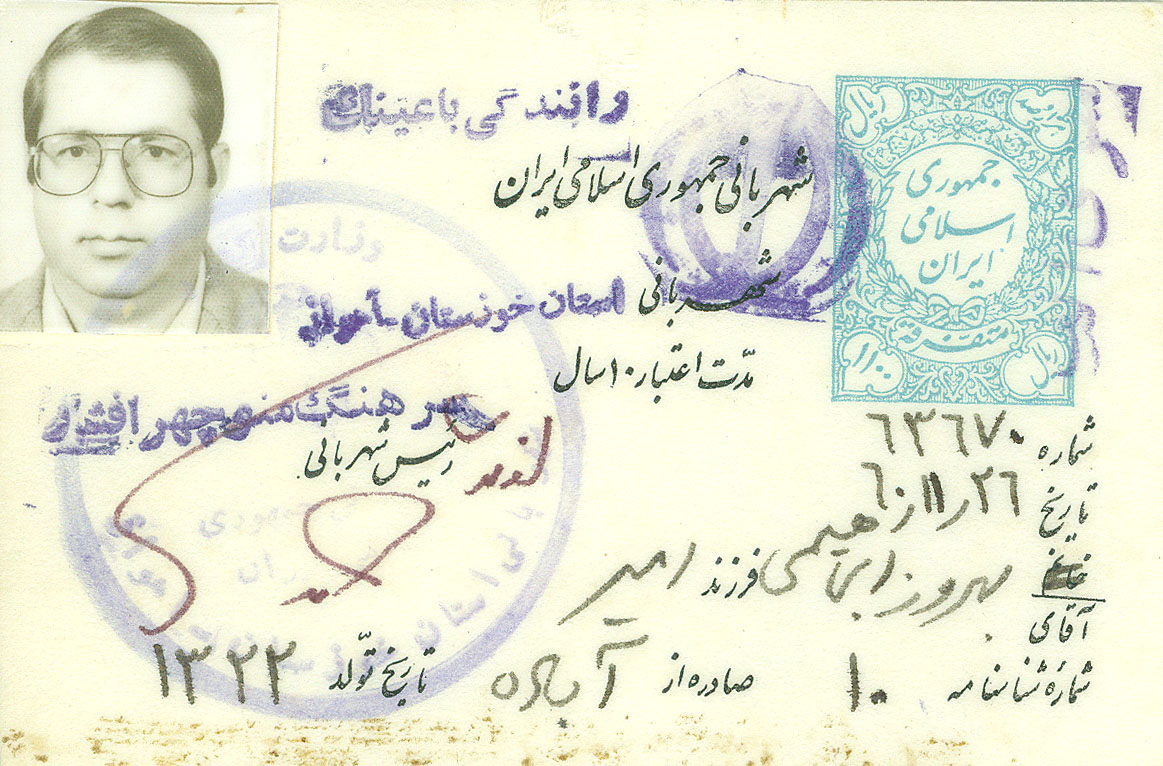 رانندگی با عینک
شهربانی جمهوری اسلامی ایران
شهربانی استان خوزستان - اهواز
مدّت اعتبار ۱۰ سال
سرهنگ منوچهر افشار
رئیس شهربانی
ریال
جمهوری
اسلامی
ایران
متفرقه
ریال
شماره ۶۳۶۷۰
تاریخ ۲۶ر۱۱ر۶۰
خانم
آقای بهروز ابراهیمی فرزند امیر
شمارهٔ شناسنامه ۱۰ صادره از آباده تاریخ تولّد ۱۳۲۲
وزارت